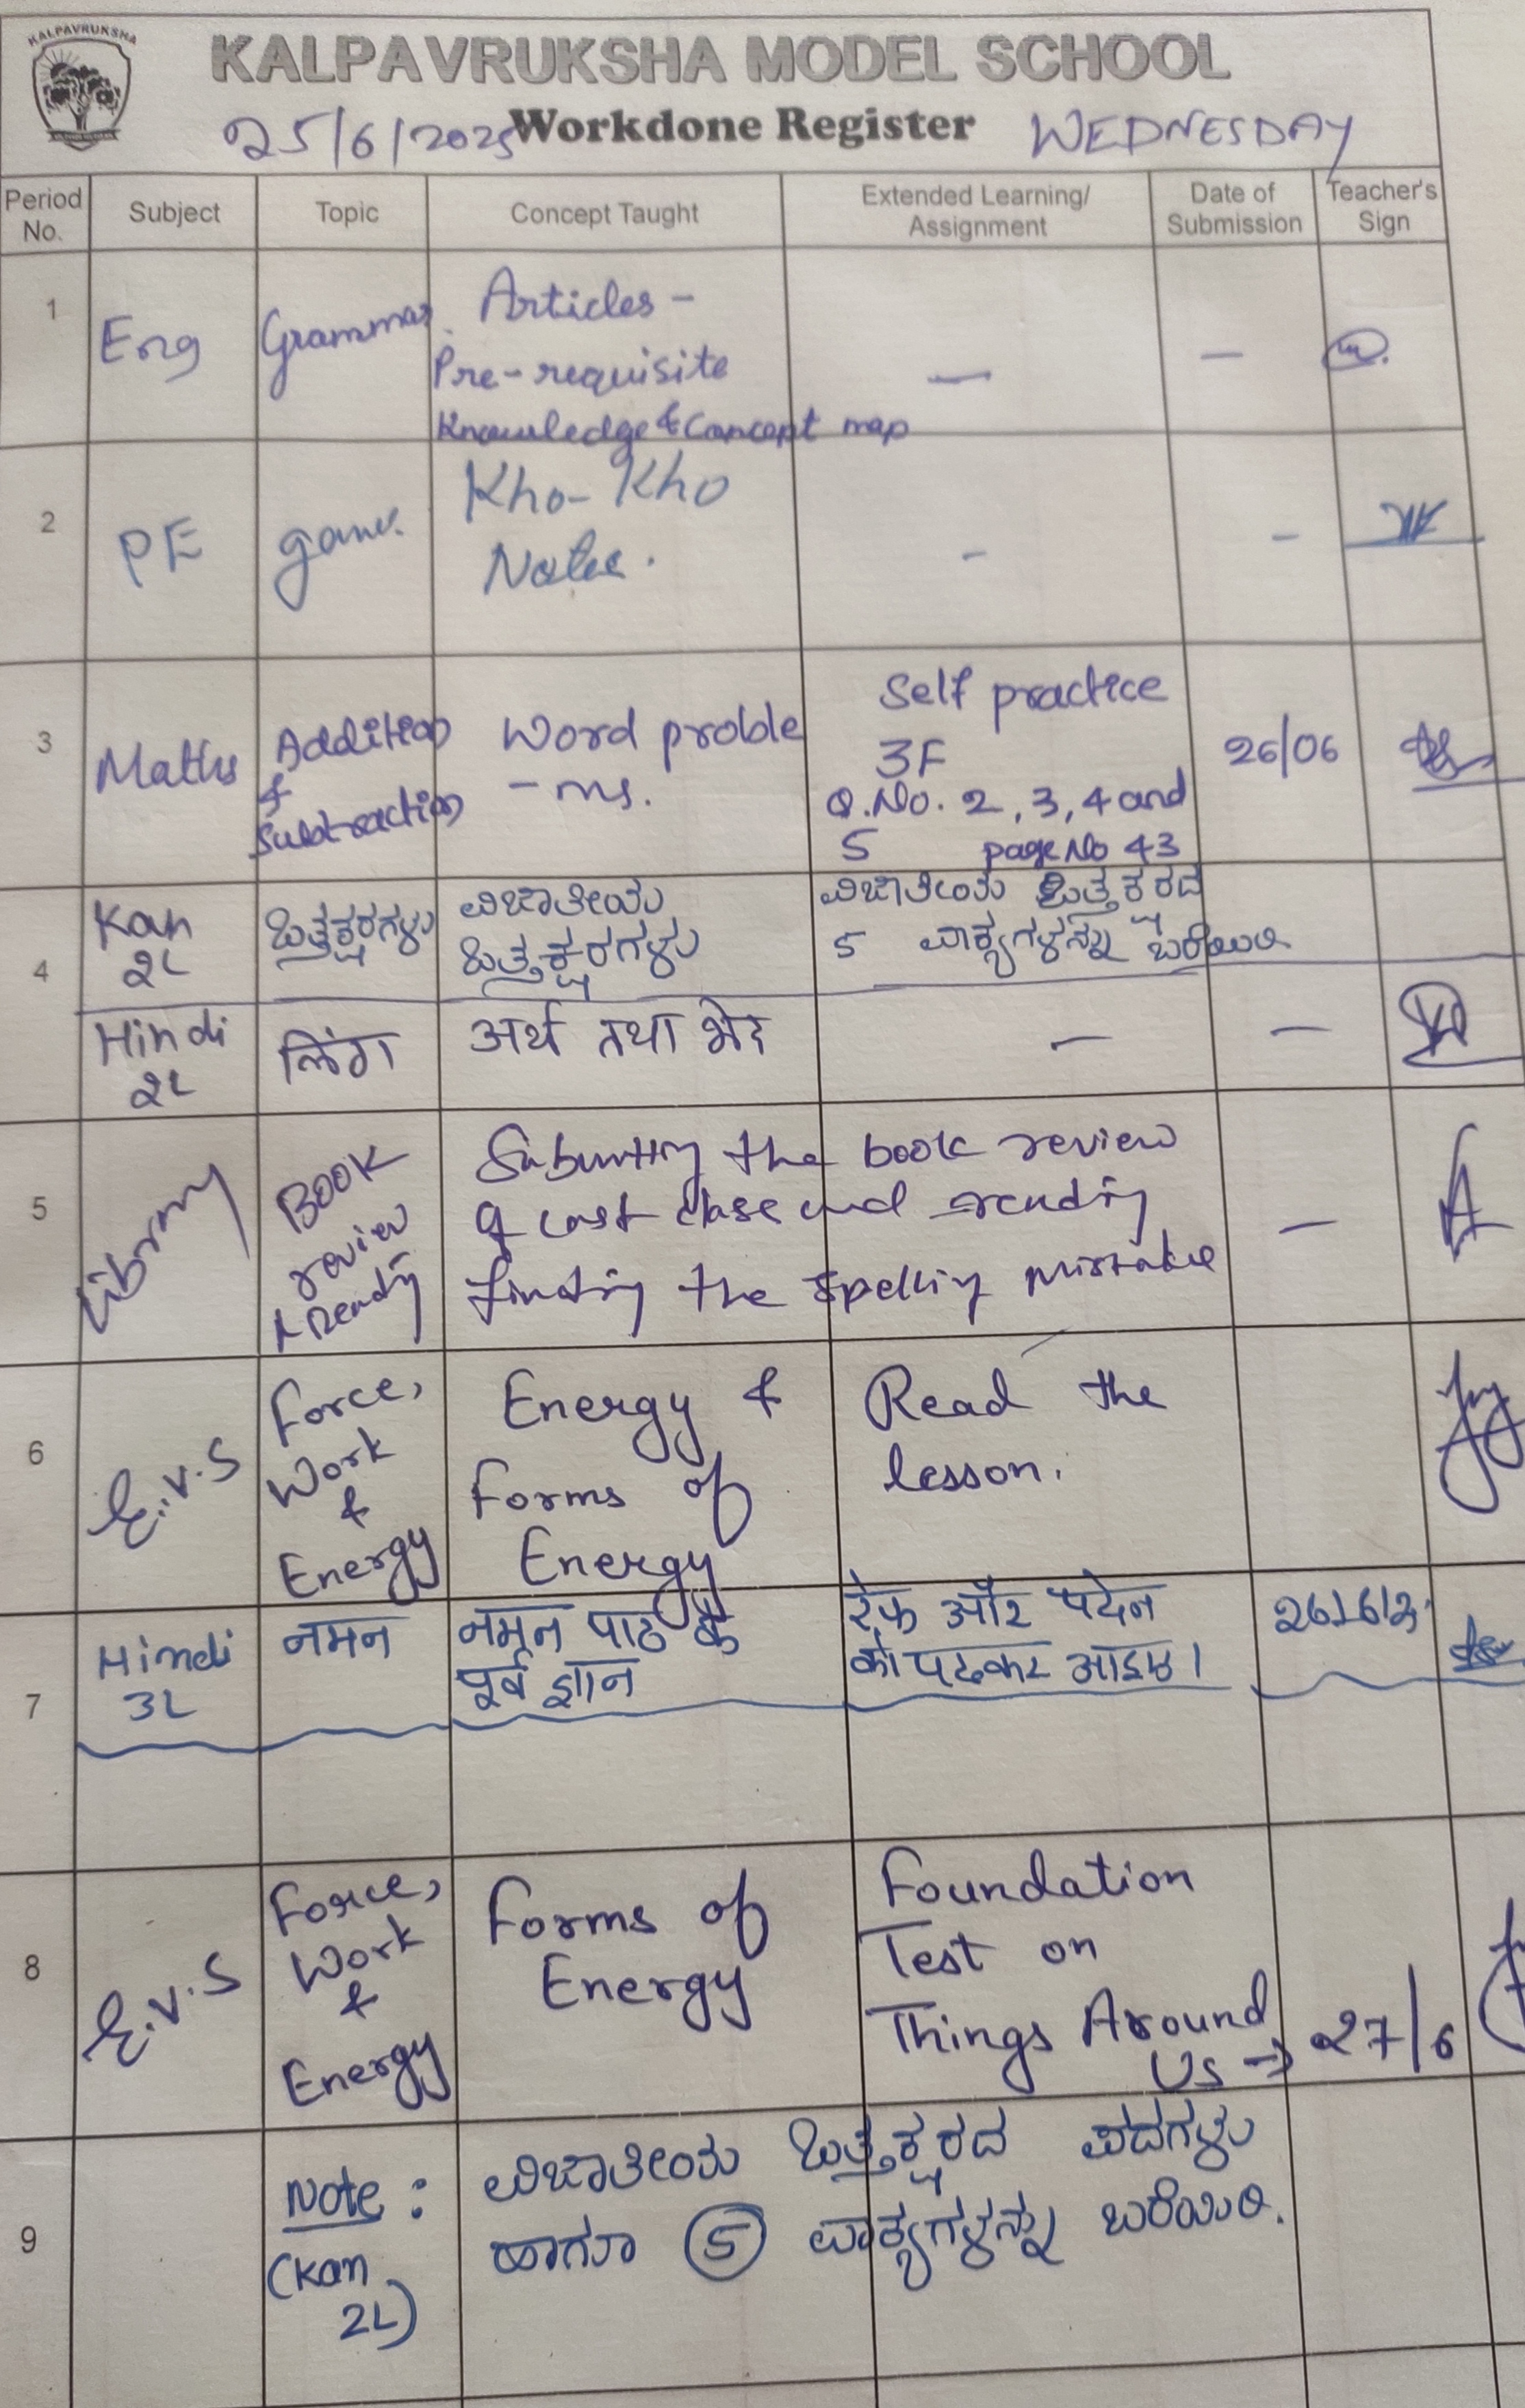 KALPAVRUKSHA
KALPAVRUKSHA MODEL SCHOOL
25/6/2025 Workdone Register WEDNESDAY
Period No. Subject Topic Concept Taught Extended Learning/ Assignment Date of Submission Teacher's Sign
1 Eng Grammar Articles - — —
Pre-requisite
Knowledge & Concept map
2 PE game Kho-Kho - -
Notes.
3 Maths Addition Word proble Self practice 26/06
& -ms. 3F
Subtraction Q.No. 2, 3, 4 and
5 page No 43
4 Kan ಒತ್ತಕ್ಷರಗಳು ವಿಜಾತೀಯ ವಿಜಾತೀಯ ಒತ್ತಕ್ಷರದ
2L ಒತ್ತಕ್ಷರಗಳು 5 ವಾಕ್ಯಗಳನ್ನು ಬರೆಯಿರಿ
Hindi लिंग अर्थ तथा भेद — —
2L
5 Library BOOK Submitting the book review —
review of last class and reading
& Reading finding the spelling mistake
6 E.V.S Force, Energy & Read the
Work Forms of lesson.
& Energy
Energy
7 Hindi नमन नमन पाठ के रेफ और पदेन 26/6/25
3L पूर्व ज्ञान को पढकर आइए।
8 E.V.S Force, Forms of Foundation
Work Energy Test on
& Things Around
Energy Us → 27/6
9 Note : ವಿಜಾತೀಯ ಒತ್ತಕ್ಷರದ ಪದಗಳು
(Kan ಹಾಗೂ 5 ವಾಕ್ಯಗಳನ್ನು ಬರೆಯಿರಿ.
2L)